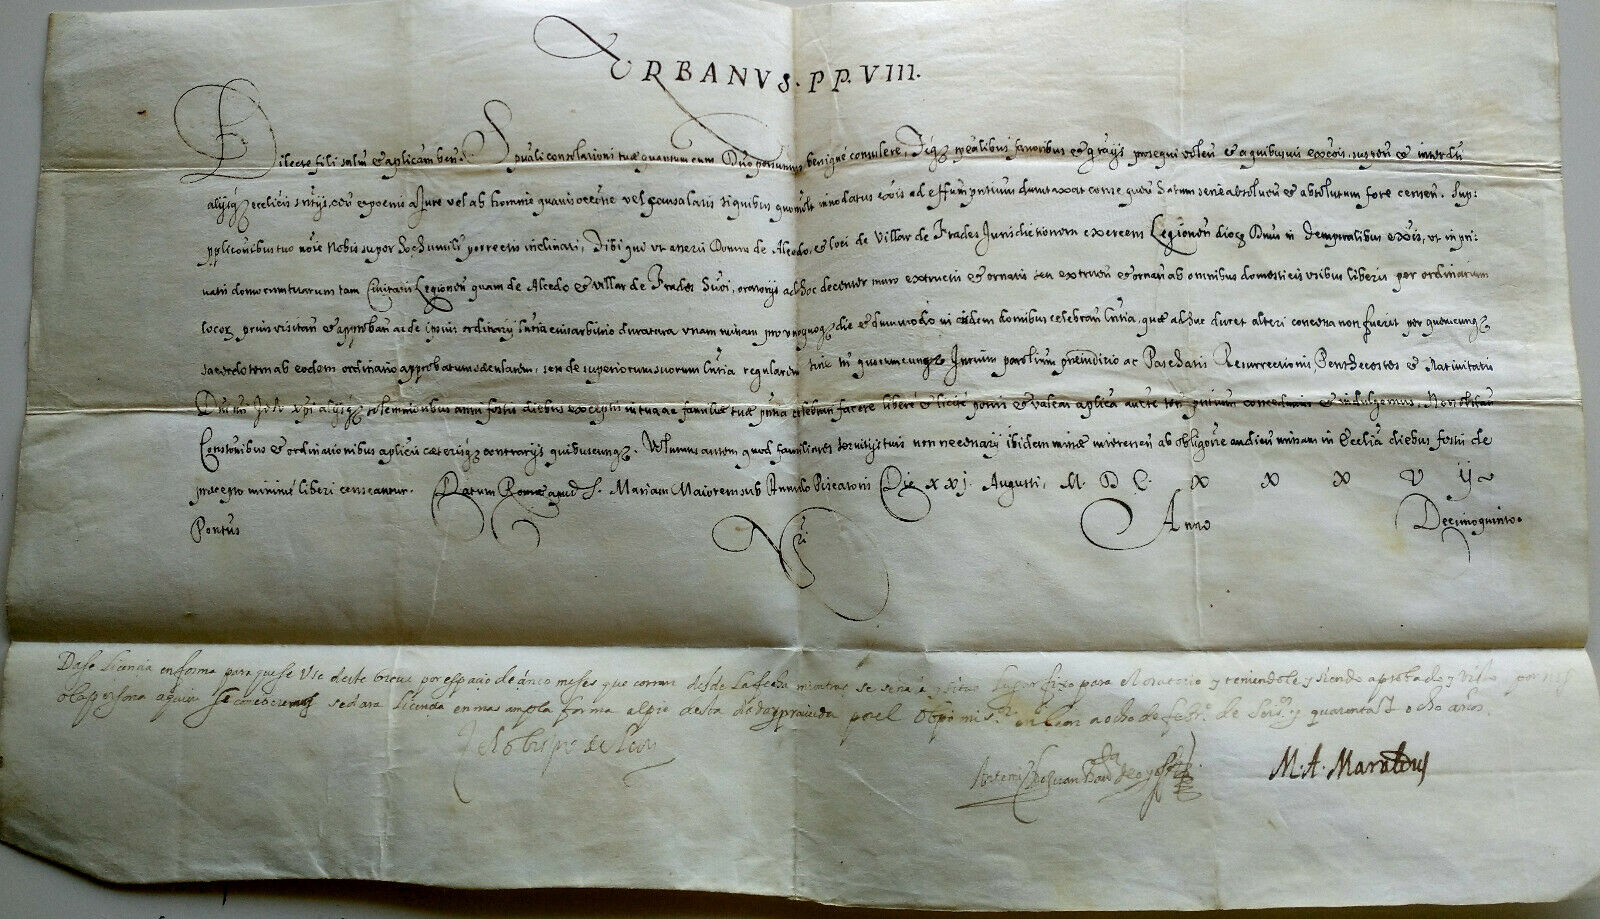 URBANVS. PP. VIII.
Dilecte fili salm et aplicam ben. Spuali consolationi tuae quantum cum Dno possumus benigne consulere, Teq spealibus favoribus et gratijs prosequi volen et a quibusvis excois, suspen et interdti
alijsq ecclicis sntijs, cen et poenis a Jure vel ab homine quavis occone vel causa latis si quibus quomlt innodatus exis ad effum pntium duntaxat conse quen harum serie absolven et absolutum fore censen. Sup:
ppliconibus tuo noie Nobis super hoc humilr porrectis inclinati, Tibi qui ut asseris Domus de Alcedo, et loci de Villar de Frades Jurisdictionem exercens Legionen dioc Dnus in Temporalibus exis, ut in pri:
vatis domorum tuarum tam Civitatis Legionen quam de Alcedo et Villar de Frades huiusmoi, oratorijs ad hoc decenter muro extructis et ornatis seu extruen et ornan ab omnibus domesticis usibus liberis per ordinarium
loci prius visitan et approban ac de ipsius ordinarij lntia eius arbitrio duratura unam missam pro unoquoq die et dummodo in eisdem domibus celebran lntia, quae adhuc duret alteri concessa non fuerit per quemcunq
sacerdotem ab eodem ordinario approbatum saecularem, seu de superiorum suorum lntia regularem sine tn quorumcunq Jurium parolium preiudicio ac Paschatis Resurrectionis Penthecostes et Nativitatis
Dni nri Jesu xpi alijsq solemnioribus anni festis diebus exceptis in tua ac familiae tuae pntia celebrari facere libere et licite possis et valeas aplica aucte teñ pntium concedimus et indulgemus. Non obstan
Constonibus et ordinationibus aplicis caeterisq contrarijs quibuscunq. Volumus autem quod familiares servitijs tuis non necessarij ibidem missae interessen ab obligone audien missam in Ecclia diebus festis de
praecepto minime liberi censeantur. Datum Romae apud S. Mariam Maiorem sub Annulo Piscatoris Die xxj. Augusti, M. D C. X X X V ij
Pontus Nri Anno Decimoquinto.
Dase licencia en forma para que se Use deste breve por espacio de cinco meses que corran desde la fecha mientras se señala sitio lugar fixo para el oratorio y teniendole y siendo aprobado y visto por nos
o la persona a quien lo cometieremos se dara licencia en mas ampla forma al pie desta dada y proveida por el Obpo mi sr. en leon a ocho de febro. de seisos. y quarenta y ocho años.
El obispo de Leon
M. A. Maraldus